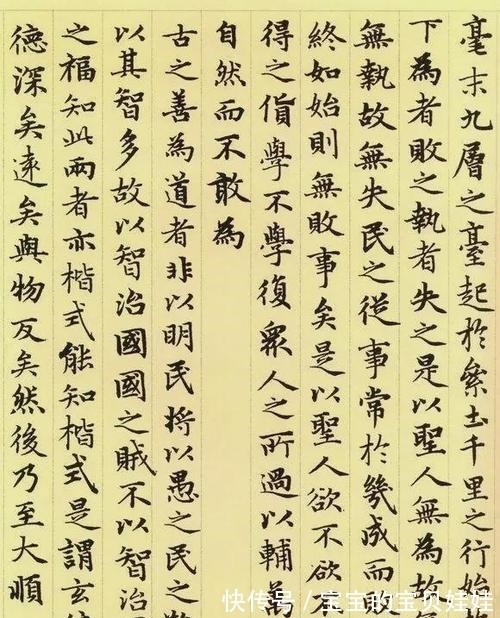 毫末九層之臺起於絫土千里之行始
下為者敗之執者失之是以聖人無為故
無執故無失民之從事常於幾成而敗
終如始則無敗事矣是以聖人欲不欲不
得之貨學不學復眾人之所過以輔萬
自然而不敢為
古之善為道者非以明民將以愚之民之
以其智多故以智治國國之賊不以智治
之福知此兩者亦楷式能知楷式是謂玄
德深矣遠矣與物反矣然後乃至大順
快传号 / 宝宝的宝贝娃娃